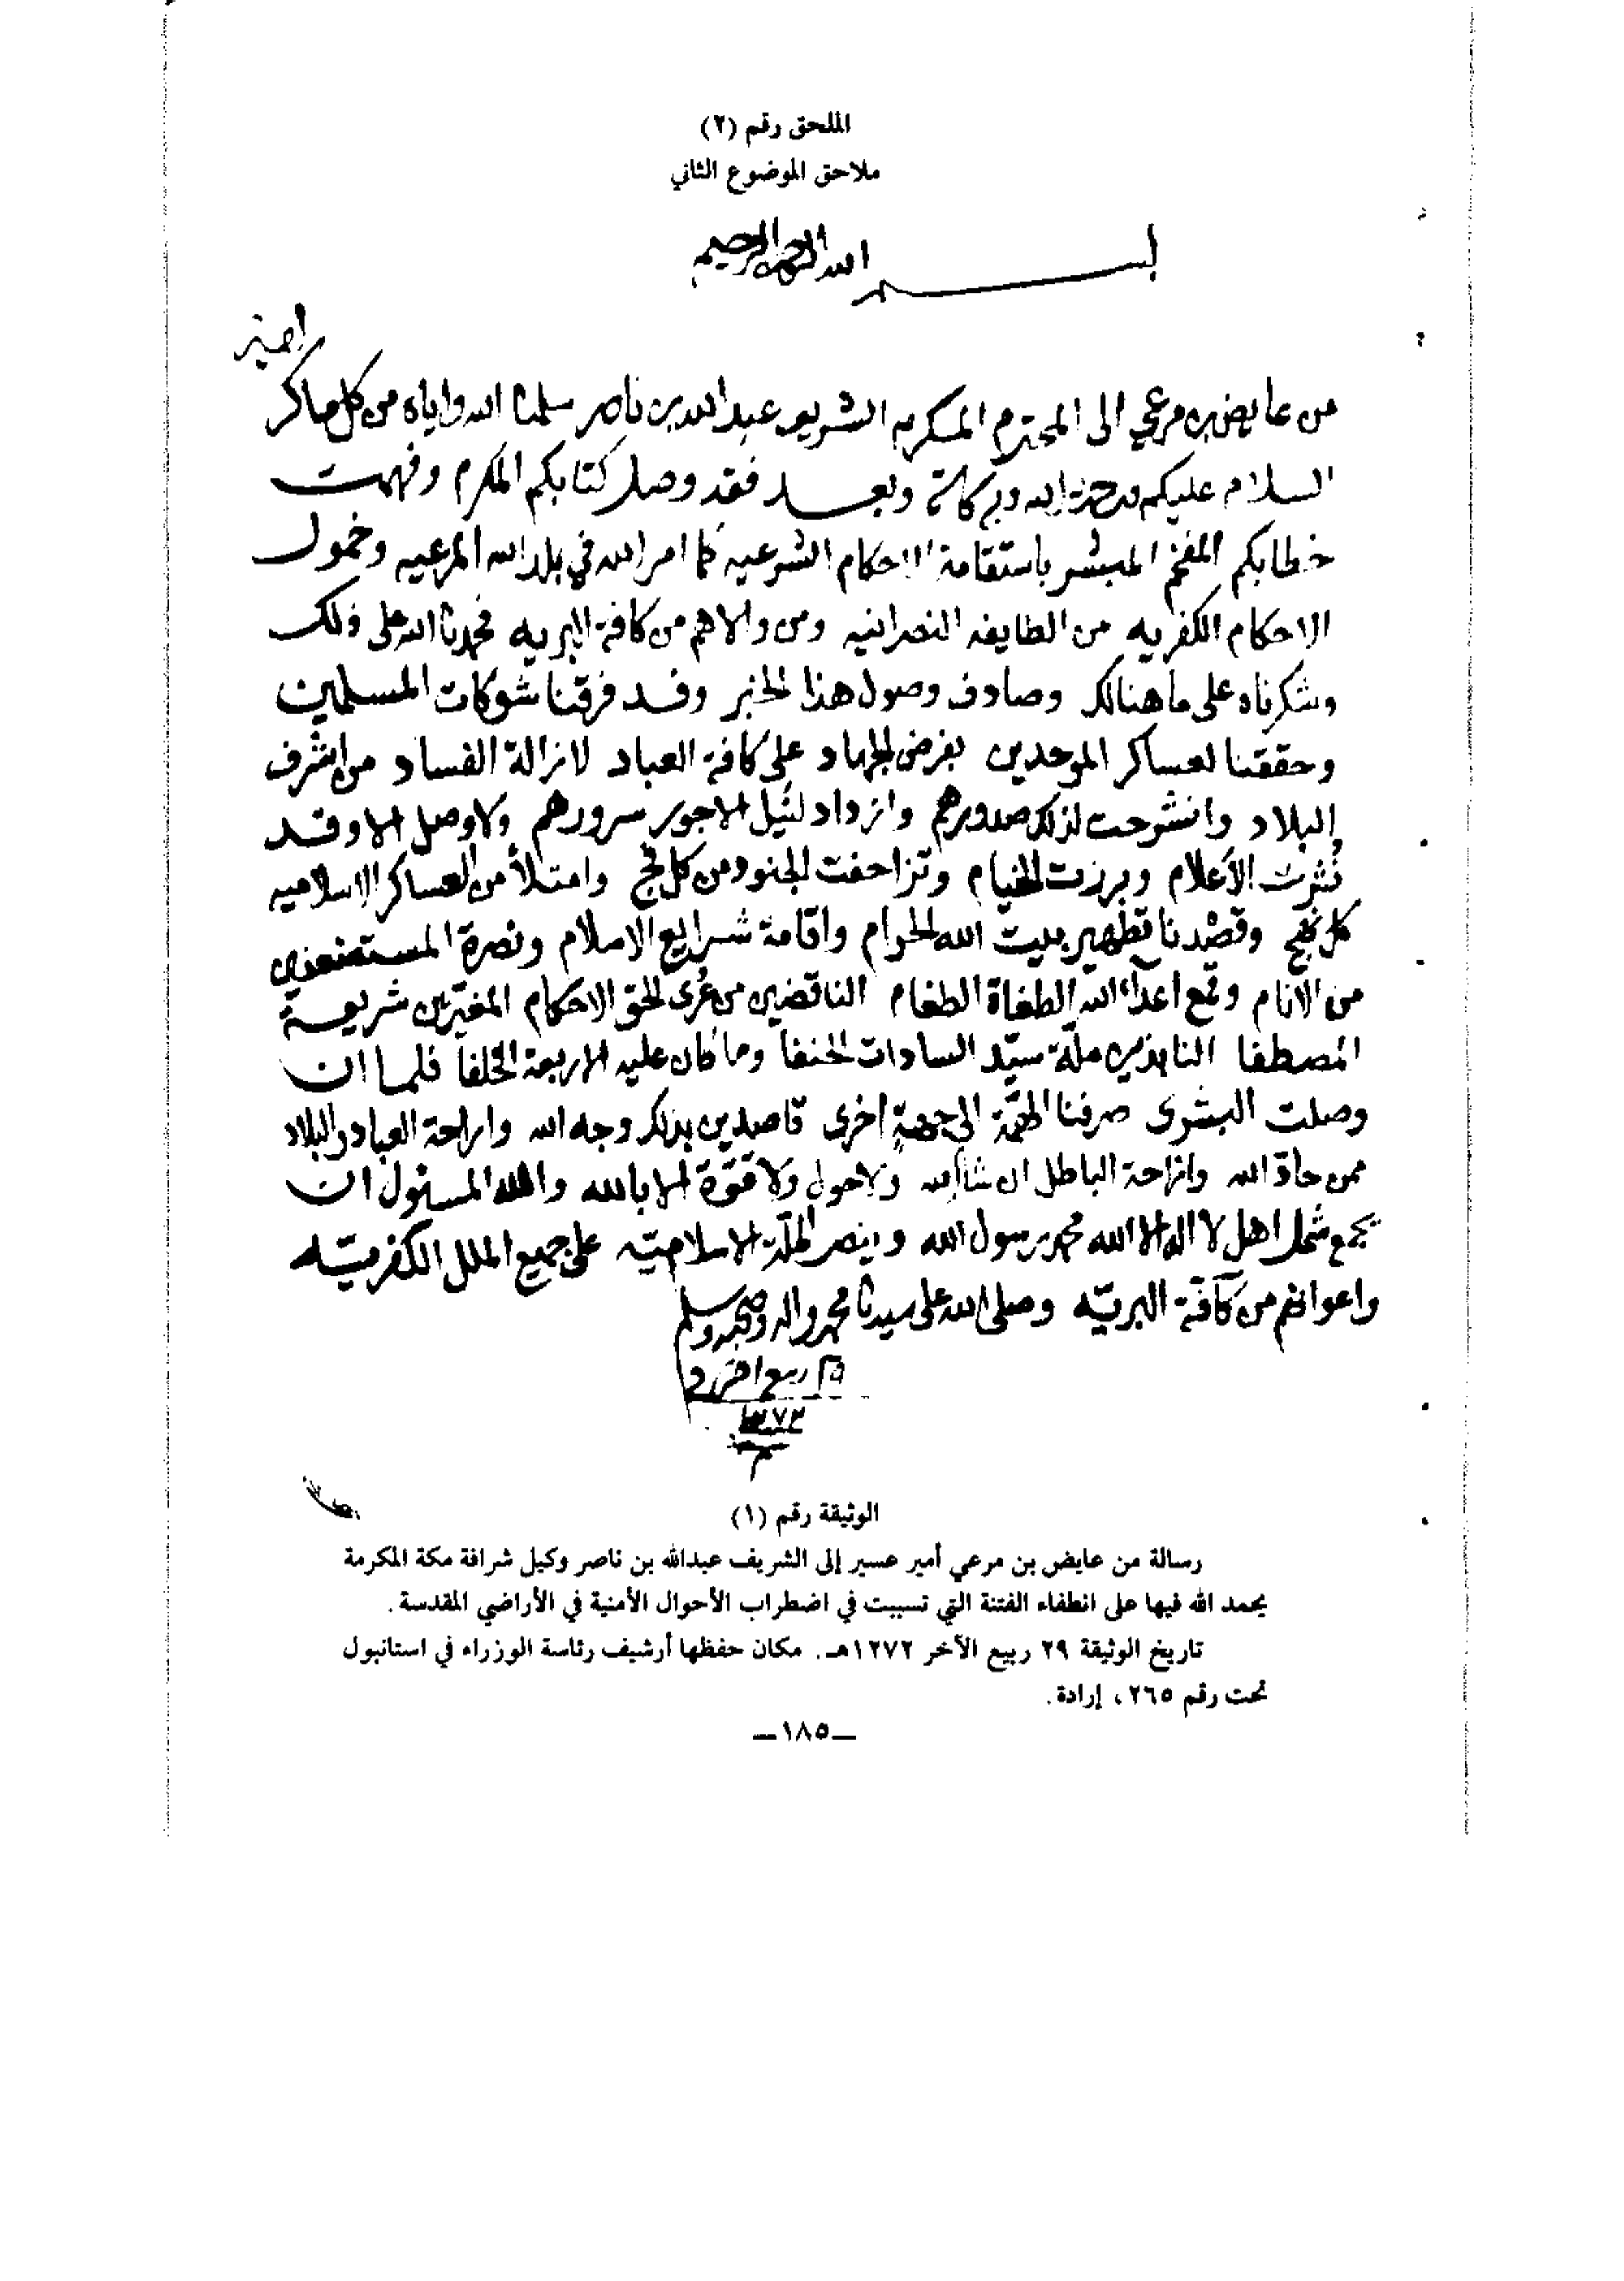 الملحق رقم (٢)
ملاحق الموضوع الثاني
بسم الله الرحمن الرحيم
من عايض بن مرعي الى المحترم المكرم الشريف عبدالله بن ناصر سلمنا الله واياه من كل ماكر
امين
السلام عليكم ورحمة الله وبركاته وبعد فقد وصل كتابكم المكرم وفهمت
خطابكم المفخم المبشر باستقامة الاحكام الشرعيه كما امر الله في بلد الله المرعيه وخمول
الاحكام الكفريه من الطايفه النصرانيه ومن والاهم من كافة البريه فحمدنا الله على ذلك
وشكرناه على ما هنالك وصادف وصول هذا الخبر وقد فرقنا شوكات المسلمين
وحققنا لعساكر الموحدين بفرض الجهاد على كافة العباد لازالة الفساد من اشرف
البلاد وانشرحت لذلك صدورهم وازداد لنيل الاجور سرورهم ولا وصل الا وقد
نُشرت الأعلام وبرزت الخيام وتزاحفت الجنود من كل فج وامتلأ من العساكر الاسلاميه
كل نهج وقصدنا تطهير بيت الله الحرام واقامة شرايع الاسلام ونصرة المستضعفين
من الانام وقمع اعدآء الله الطغاة الطغام الناقضين من عُرى الحق الاحكام المغيّرين شريعة
المصطفا النابذين ملّة سيّد السادات الحنفا وما كان عليه الاربعة الخلفا فلما ان
وصلت البشرى صرفنا الهمّة الى جهةٍ اخرى قاصدين بذلك وجه الله واراحة العباد والبلاد
ممن حادّ الله وازاحة الباطل ان شا الله ولا حول ولا قوّة الا بالله والله المسئول ان
يجمع شمل اهل لا اله الا الله محمد رسول الله وينصر الملّة الاسلاميّه على جميع الملل الكفريّه
واعوانهم من كآفّة البريّه وصلى الله على سيدنا محمد واله وصحبه وسلم
ربيع اخر
الوثيقة رقم (١)
رسالة من عايض بن مرعي أمير عسير إلى الشريف عبدالله بن ناصر وكيل شرافة مكة المكرمة
يحمد الله فيها على انطفاء الفتنة التي تسببت في اضطراب الأحوال الأمنية في الأراضي المقدسة.
تاريخ الوثيقة ٢٩ ربيع الآخر ١٢٧٢هـ. مكان حفظها أرشيف رئاسة الوزراء في استانبول
تحت رقم ٢٦٥، إرادة.
—١٨٥—